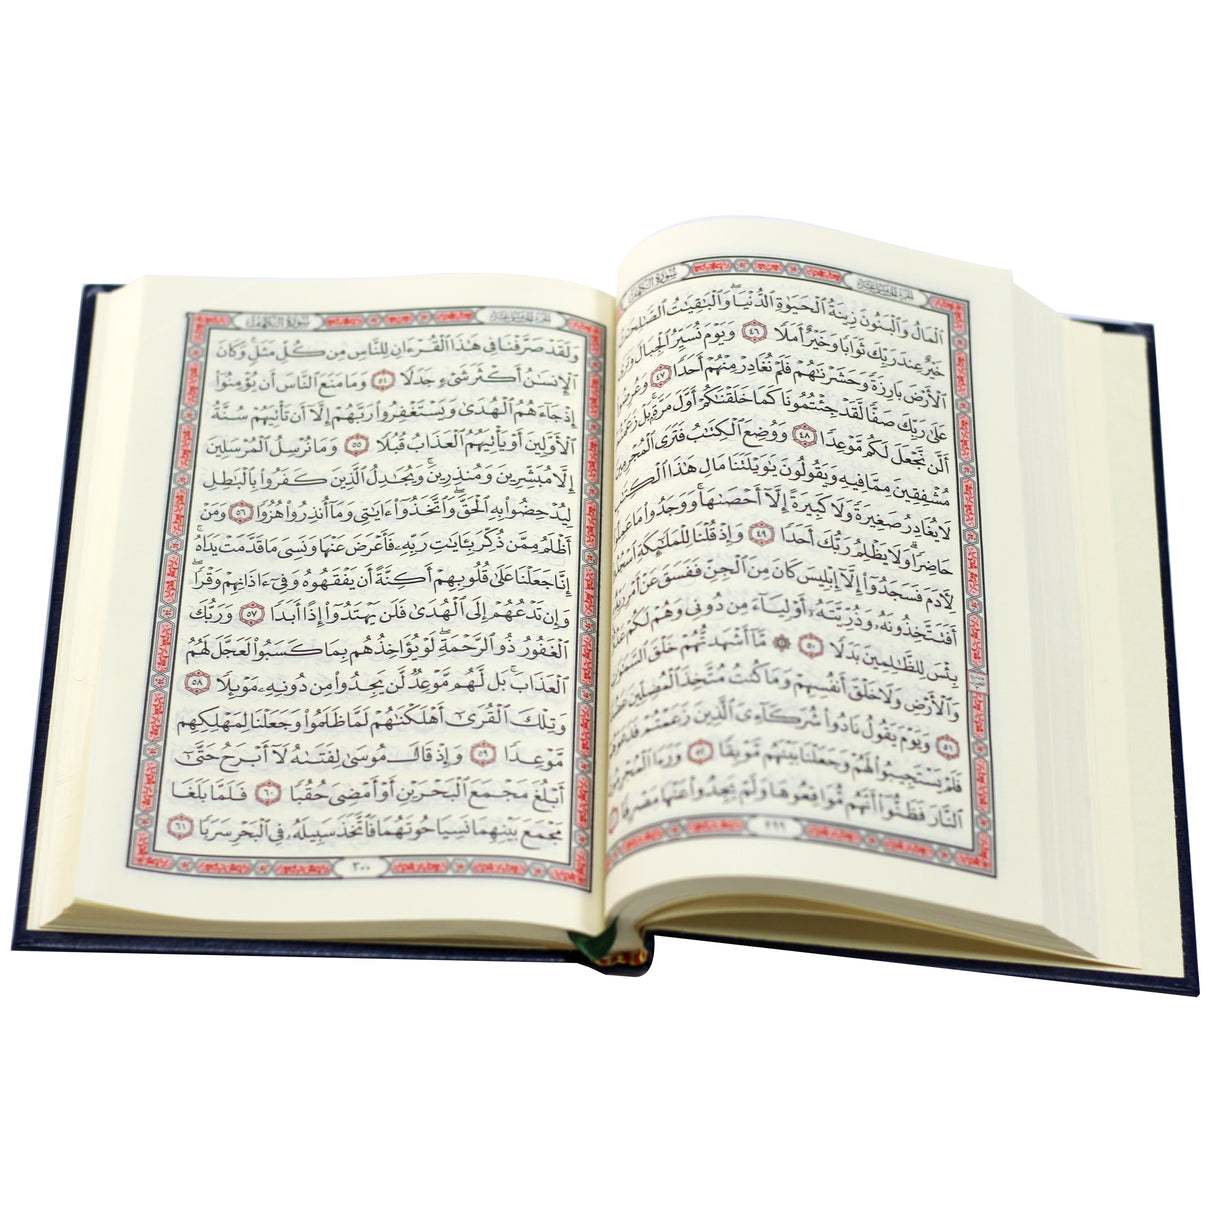 سورة الكهف
ٱلْمَالُ وَٱلْبَنُونَ زِينَةُ ٱلْحَيَوٰةِ ٱلدُّنْيَا ۖ وَٱلْبَٰقِيَٰتُ ٱلصَّٰلِحَٰتُ
خَيْرٌ عِندَ رَبِّكَ ثَوَابًا وَخَيْرٌ أَمَلًا ٤٦ وَيَوْمَ نُسَيِّرُ ٱلْجِبَالَ وَتَرَى
ٱلْأَرْضَ بَارِزَةً وَحَشَرْنَٰهُمْ فَلَمْ نُغَادِرْ مِنْهُمْ أَحَدًا ٤٧ وَعُرِضُوا۟
عَلَىٰ رَبِّكَ صَفًّا لَّقَدْ جِئْتُمُونَا كَمَا خَلَقْنَٰكُمْ أَوَّلَ مَرَّةٍۭ ۚ بَلْ زَعَمْتُمْ
أَلَّن نَّجْعَلَ لَكُم مَّوْعِدًا ٤٨ وَوُضِعَ ٱلْكِتَٰبُ فَتَرَى ٱلْمُجْرِمِينَ
مُشْفِقِينَ مِمَّا فِيهِ وَيَقُولُونَ يَٰوَيْلَتَنَا مَالِ هَٰذَا ٱلْكِتَٰبِ
لَا يُغَادِرُ صَغِيرَةً وَلَا كَبِيرَةً إِلَّآ أَحْصَىٰهَا ۚ وَوَجَدُوا۟ مَا عَمِلُوا۟
حَاضِرًا ۗ وَلَا يَظْلِمُ رَبُّكَ أَحَدًا ٤٩ وَإِذْ قُلْنَا لِلْمَلَٰٓئِكَةِ ٱسْجُدُوا۟
لِـَٔادَمَ فَسَجَدُوٓا۟ إِلَّآ إِبْلِيسَ كَانَ مِنَ ٱلْجِنِّ فَفَسَقَ عَنْ أَمْرِ رَبِّهِۦٓ ۗ
أَفَتَتَّخِذُونَهُۥ وَذُرِّيَّتَهُۥٓ أَوْلِيَآءَ مِن دُونِى وَهُمْ لَكُمْ عَدُوٌّۢ ۚ
بِئْسَ لِلظَّٰلِمِينَ بَدَلًا ٥٠ ۞ مَّآ أَشْهَدتُّهُمْ خَلْقَ ٱلسَّمَٰوَٰتِ
وَٱلْأَرْضِ وَلَا خَلْقَ أَنفُسِهِمْ وَمَا كُنتُ مُتَّخِذَ ٱلْمُضِلِّينَ عَضُدًا
٥١ وَيَوْمَ يَقُولُ نَادُوا۟ شُرَكَآءِىَ ٱلَّذِينَ زَعَمْتُمْ فَدَعَوْهُمْ
فَلَمْ يَسْتَجِيبُوا۟ لَهُمْ وَجَعَلْنَا بَيْنَهُم مَّوْبِقًا ٥٢ وَرَءَا ٱلْمُجْرِمُونَ
ٱلنَّارَ فَظَنُّوٓا۟ أَنَّهُم مُّوَاقِعُوهَا وَلَمْ يَجِدُوا۟ عَنْهَا مَصْرِفًا
٢٩٩
سورة الكهف
وَلَقَدْ صَرَّفْنَا فِى هَٰذَا ٱلْقُرْءَانِ لِلنَّاسِ مِن كُلِّ مَثَلٍ ۚ وَكَانَ
ٱلْإِنسَٰنُ أَكْثَرَ شَىْءٍ جَدَلًا ٥٤ وَمَا مَنَعَ ٱلنَّاسَ أَن يُؤْمِنُوٓا۟
إِذْ جَآءَهُمُ ٱلْهُدَىٰ وَيَسْتَغْفِرُوا۟ رَبَّهُمْ إِلَّآ أَن تَأْتِيَهُمْ سُنَّةُ
ٱلْأَوَّلِينَ أَوْ يَأْتِيَهُمُ ٱلْعَذَابُ قُبُلًا ٥٥ وَمَا نُرْسِلُ ٱلْمُرْسَلِينَ
إِلَّا مُبَشِّرِينَ وَمُنذِرِينَ ۚ وَيُجَٰدِلُ ٱلَّذِينَ كَفَرُوا۟ بِٱلْبَٰطِلِ
لِيُدْحِضُوا۟ بِهِ ٱلْحَقَّ ۖ وَٱتَّخَذُوٓا۟ ءَايَٰتِى وَمَآ أُنذِرُوا۟ هُزُوًا ٥٦ وَمَنْ
أَظْلَمُ مِمَّن ذُكِّرَ بِـَٔايَٰتِ رَبِّهِۦ فَأَعْرَضَ عَنْهَا وَنَسِىَ مَا قَدَّمَتْ يَدَاهُ ۚ
إِنَّا جَعَلْنَا عَلَىٰ قُلُوبِهِمْ أَكِنَّةً أَن يَفْقَهُوهُ وَفِىٓ ءَاذَانِهِمْ وَقْرًا ۖ
وَإِن تَدْعُهُمْ إِلَى ٱلْهُدَىٰ فَلَن يَهْتَدُوٓا۟ إِذًا أَبَدًا ٥٧ وَرَبُّكَ
ٱلْغَفُورُ ذُو ٱلرَّحْمَةِ ۖ لَوْ يُؤَاخِذُهُم بِمَا كَسَبُوا۟ لَعَجَّلَ لَهُمُ
ٱلْعَذَابَ ۚ بَل لَّهُم مَّوْعِدٌ لَّن يَجِدُوا۟ مِن دُونِهِۦ مَوْئِلًا ٥٨
وَتِلْكَ ٱلْقُرَىٰٓ أَهْلَكْنَٰهُمْ لَمَّا ظَلَمُوا۟ وَجَعَلْنَا لِمَهْلِكِهِم
مَّوْعِدًا ٥٩ وَإِذْ قَالَ مُوسَىٰ لِفَتَىٰهُ لَآ أَبْرَحُ حَتَّىٰٓ
أَبْلُغَ مَجْمَعَ ٱلْبَحْرَيْنِ أَوْ أَمْضِىَ حُقُبًا ٦٠ فَلَمَّا بَلَغَا
مَجْمَعَ بَيْنِهِمَا نَسِيَا حُوتَهُمَا فَٱتَّخَذَ سَبِيلَهُۥ فِى ٱلْبَحْرِ سَرَبًا ٦١
٣٠٠